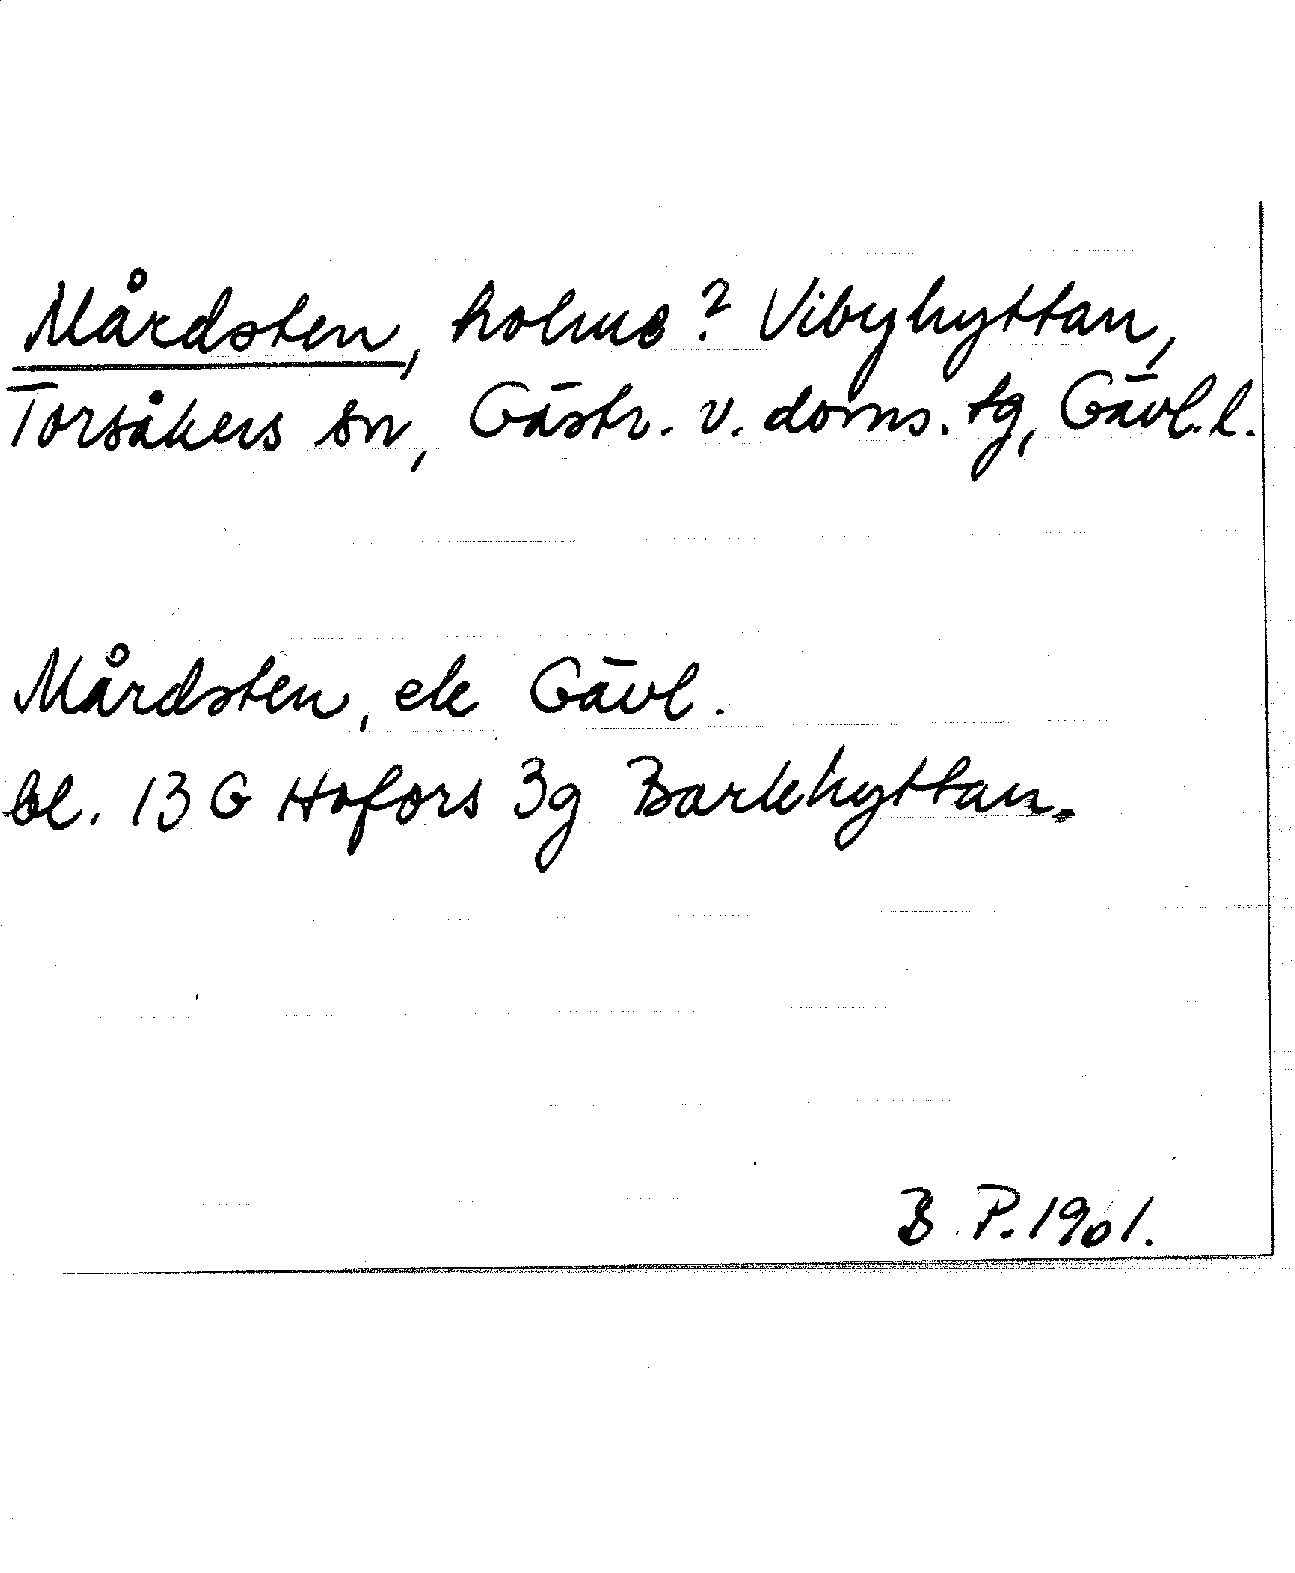 Mårdsten, holme? Vibyhyttan,
Torsåkers sn, Gästr. v. doms. tg, Gävl. l.
Mårdsten, ek Gävl.
bl. 13 G Hofors 3g Barkhyttan.
B. P. 1961.